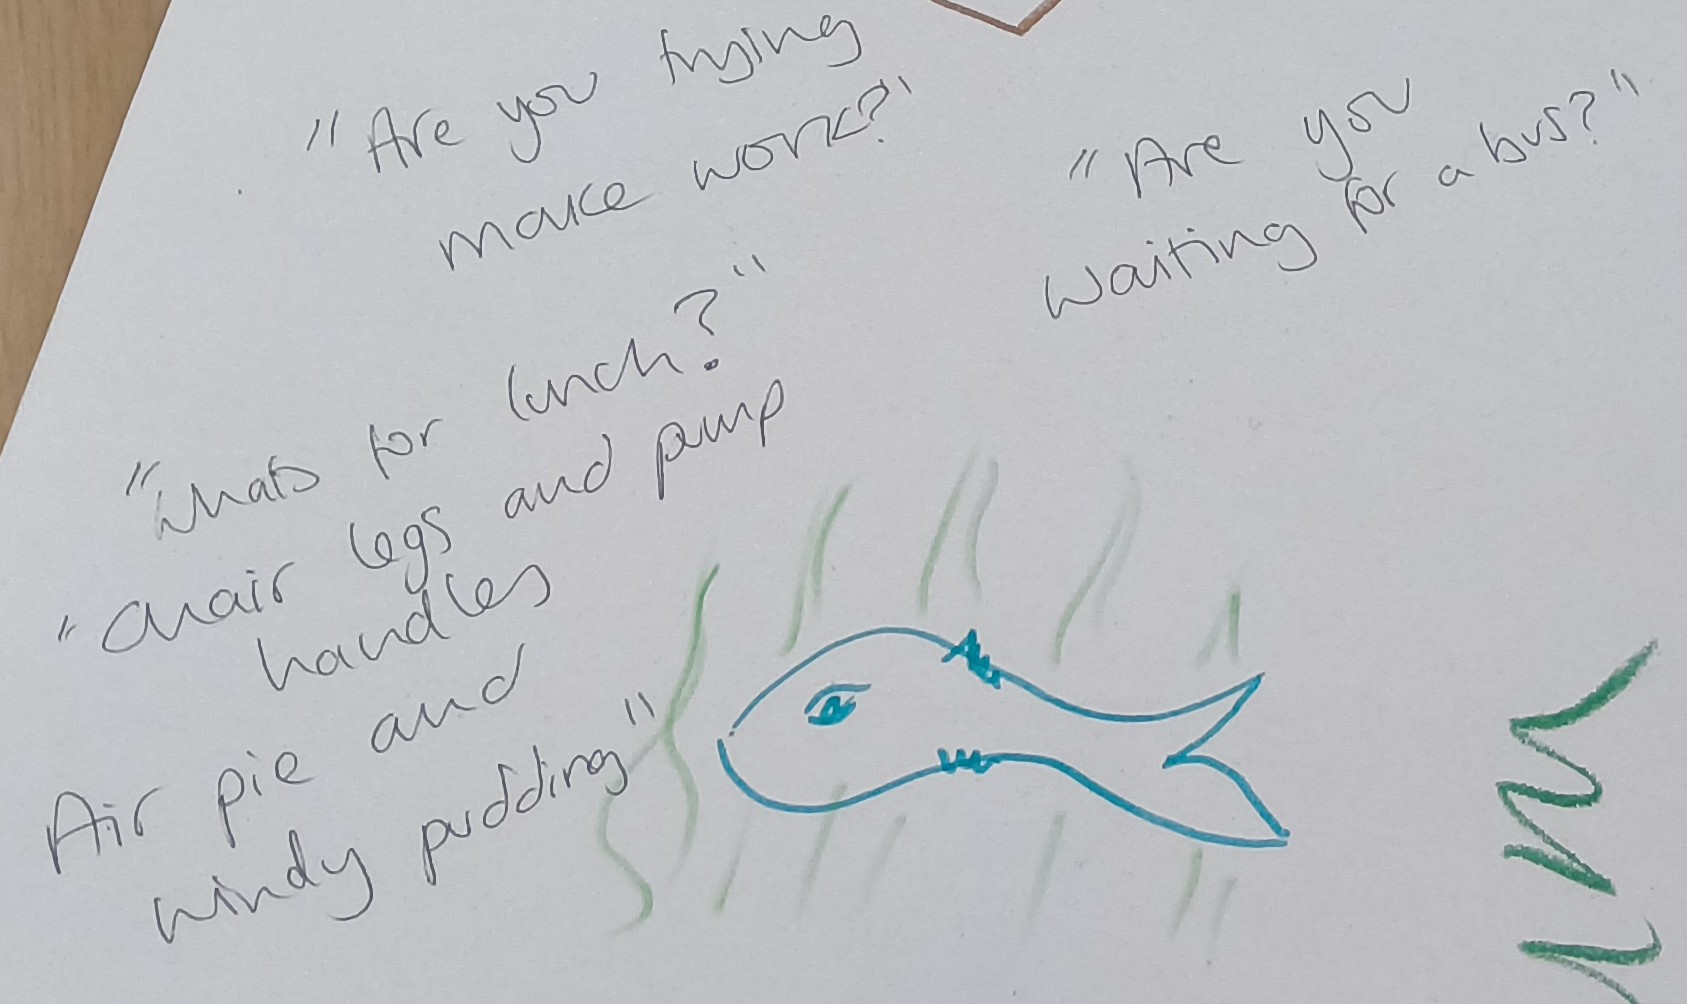 "Are you trying
make work?"
"Are you
waiting for a bus?"
"Whats for lunch?"
"Chair legs and pump
handles
Air pie and
windy pudding"